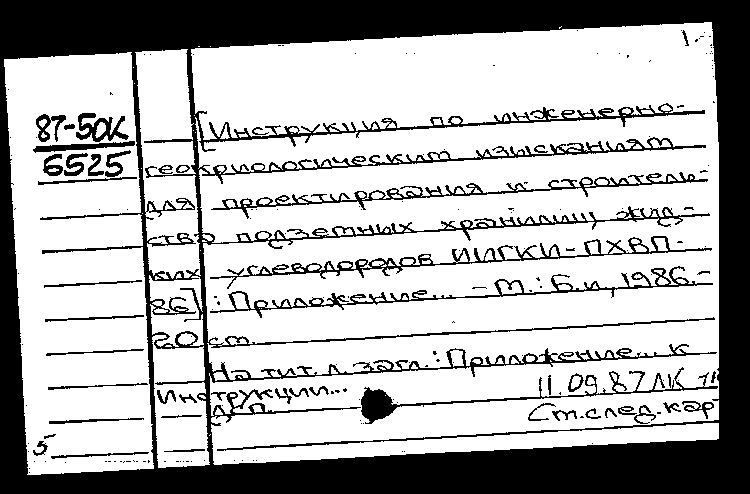 1.-
87-50К
6525
[Инструкция по инженерно-
геокриологическим изысканиям
для проектирования и строитель-
ства подземных хранилищ жид-
ких углеводородов ИИГКИ-ПХВП-
86] : Приложение... - М.: Б.и., 1986.-
20 см.
На тит. л. загл.: Приложение... к
Инструкции...
ДСП.
11.09.87 ЛК
См.след.кар
5